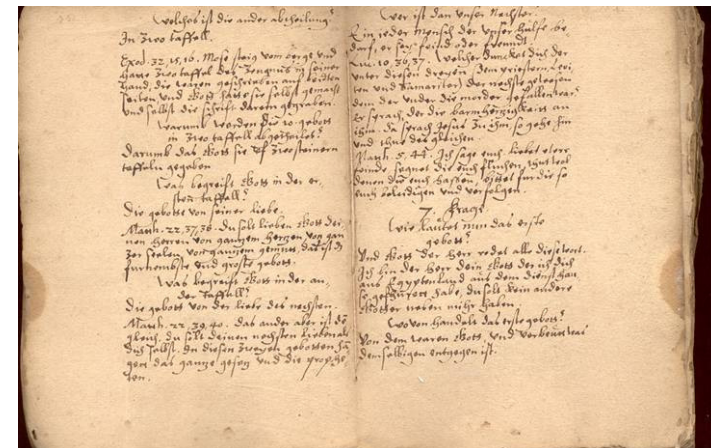 Welches ist die ander abtheilung?
In zwo taffell.
Exod. 32, 15, 16. Mose steig vom berge und
hatte zwo taffel der Zeugnis in seiner
hand, die waren geschrieben auf beiden
seiten und Gott hatte sie selbst gemacht
und selbst die schrift darein gegraben.
Warumb werden die 10 gebott
in zwo taffell abgetheilet?
Darumb das Gott sie uff zwo steinern
taffeln gegeben
Was begreift Gott in der er,
sten taffell?
Die gebotte von seiner liebe.
Matth. 22, 37, 38. Du solt lieben Gott dei,
nen Herren von ganzem herzen von gan,
zer seelen, von ganzem gemüt, das ist dz
furnembste und groste gebott.
Was begreift Gott in der an,
der taffell?
Die gebott von der liebe des nechsten.
Matth. 22, 39, 40. das ander aber ist dem
gleich, du solt deinen nechsten lieben als
dich selbst. In diesen zweyen gebotten han
get das ganze gesez und die prophe,
ten.
Wer ist dan unser Nechster?
Ein ieder Mensch der unser hülfe be,
darf, er sey feind oder freundt.
Luc. 10, 36, 37. Welcher dunckt dich der
unter diesen dreyen (dem priestern, Levi,
ten und Samariter) der nechste gewesen
dem der under die mörder gefallen war?
Er sprach, der die barmherzigkeit an
ihm. da sprach Jesus zu ihm, so gehe hin
und thue des gleichen
Matth. 5, 44. Ich sage euch, liebet ewere
feinde, segnet die euch fluchen, thut wol
denen die euch hassen, bittet für die so
euch beleidigen und verfolgen.
7. Frag.
Wie lautet nun das erste
gebott?
Und Gott der Herr redet alle diese wort.
Ich bin der Herr dein Gott der ich dich
aus Egyptenland aus dem diensthau,
se gefüret habe, du solt kein andere
Götter neben mihr haben.
Wovon handelt das erste gebott?
Von dem waren Gott, und verbeutt was
demselbigen entgegen ist.